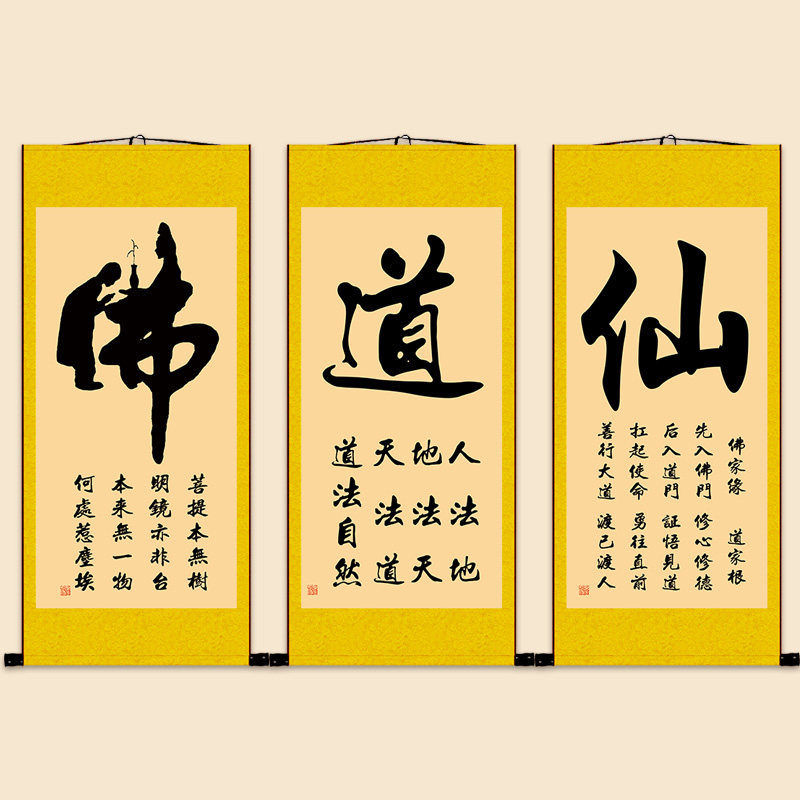 佛
菩提本無樹
明鏡亦非台
本来無一物
何處惹塵埃
道
人法地
地法天
天法道
道法自然
仙
佛家緣 道家根
先入佛門 修心修德
后入道門 証悟見道
扛起使命 勇往直前
善行大道 渡己渡人